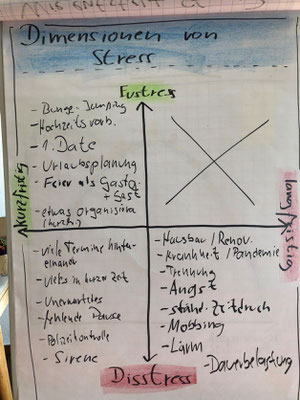 Dimensionen von
Stress
Eustress
- Bungee-Jumping
- Hochzeitsvorb.
- 1. Date
- Urlaubsplanung
- Feier als Gastg.
+ Gast
- etwas organisieren
kurzfristig
langfristig
- viele Termine hinter-
einander
- vieles in kurzer Zeit
- Unerwartetes
- fehlende Pause
- Polizeikontrolle
- Sirene
- Hausbau/Renov.
- Krankheit/Pandemie
- Trennung
- Angst
- ständ. Zeitdruck
- Mobbing
- Lärm
- Dauerbelastung
Disstress